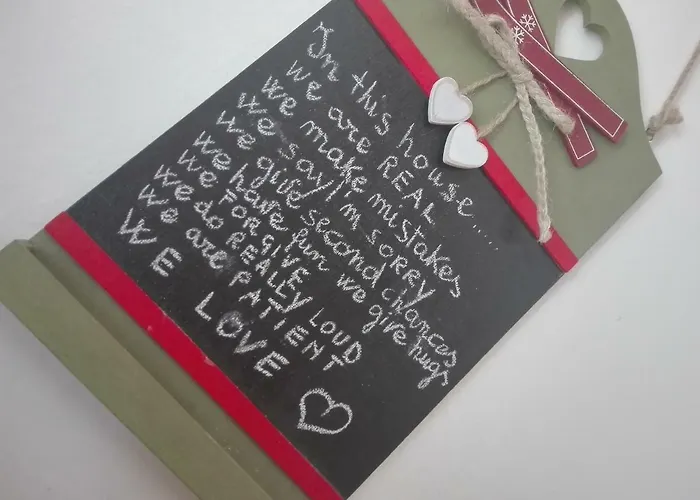 In this house.....
we are REAL
we make mistakes
we say I'm SORRY
we give second chances
we have fun we give hugs
we FORGIVE
we do REALLY LOUD
we are PATIENT
WE LOVE